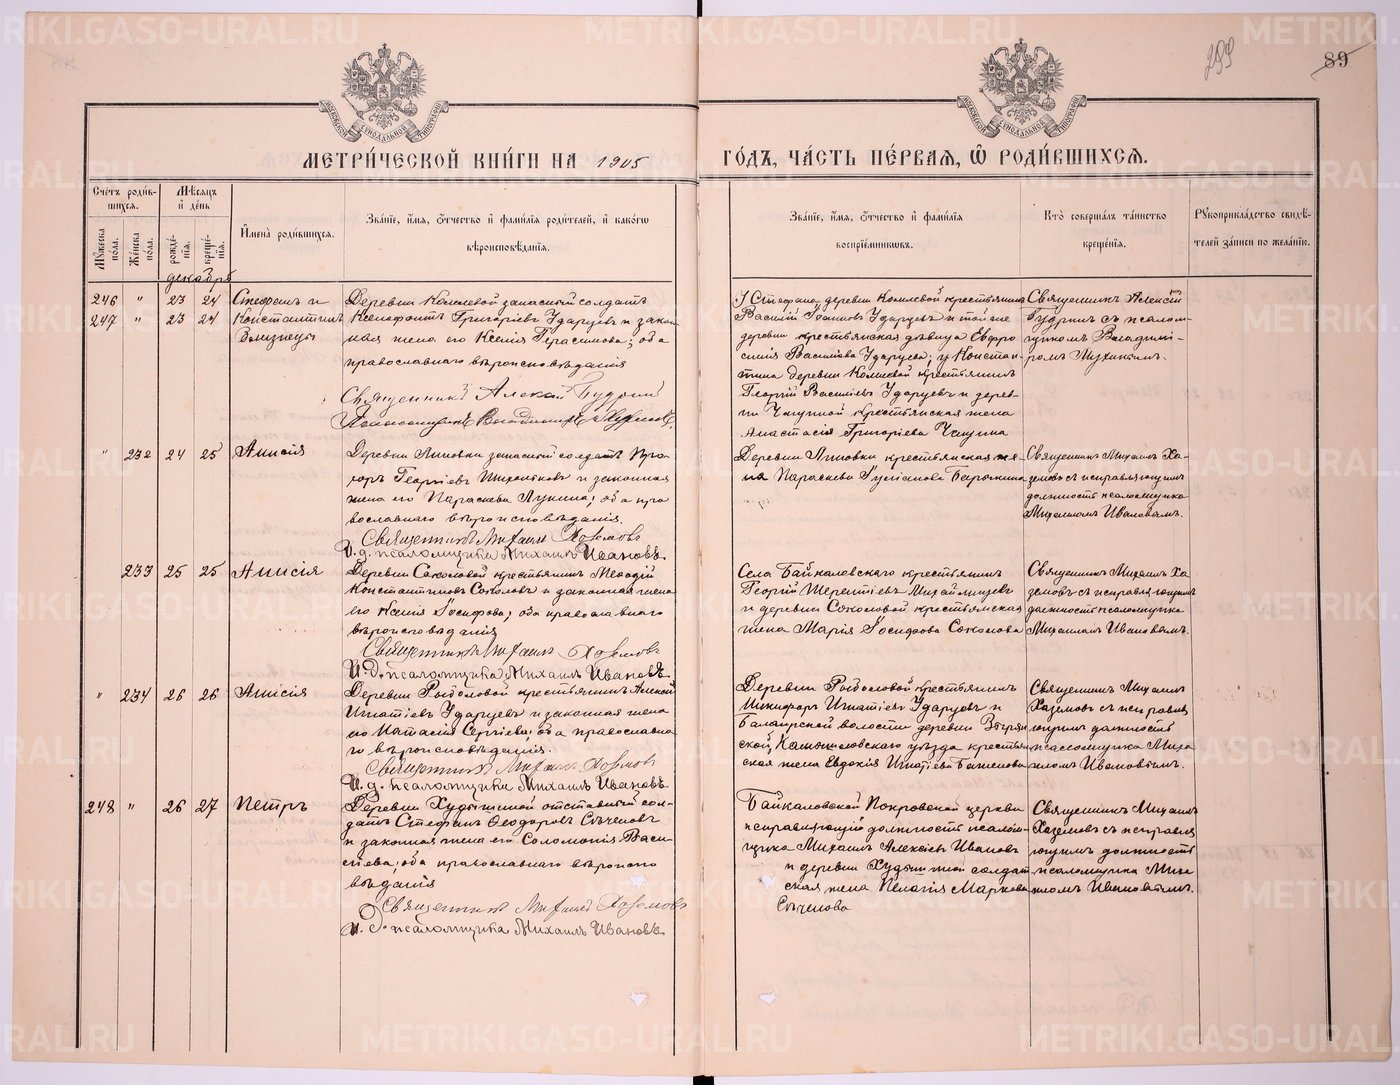 299
89
МОСКОВСКОЙ СѴНОДАЛЬНОЙ ТИПОГРАФІИ
МОСКОВСКОЙ СѴНОДАЛЬНОЙ ТИПОГРАФІИ
МЕТРИ́ЧЕСКОЙ КНИ́ГИ НА 1905
ГО́ДЪ, ЧА́СТЬ ПЕ́РВАЯ, Ѡ РОДИ́ВШИХСЯ.
Счетъ роди́в-
шихся.
Мꙋжеска по́ла.
Же́нска по́ла.
Мѣ́сяцъ
и҆ де́нь
рожде́-
нїя.
креще́-
нїя.
И҆мена̀ роди́вшихся.
Зва́нїе, и҆́мя, ѻ҆́тчество и҆ фами́лїя роди́телей, и҆ како́гѡ
вѣроисповѣ́данїя.
Зва́нїе, и҆́мя, ѻ҆́тчество и҆ фами́лїя
воспрїе́мниковъ.
Кто̀ соверша́лъ та́инство
креще́нїя.
Рꙋкоприкла́дство свидѣ́-
телей за́писи по жела́нїю.
декабрь
246 " 23 24 Стефанъ и
247 " 23 24 Константинъ
близнецы
Деревни Комлевой запасный солдатъ
Ксенофонтъ Григоріевъ Ударцевъ и закон
ная жена его Ксенія Герасимова; оба
православнаго вѣроисповѣданія
Священникъ Алексій Будринъ
Псаломщикъ Владиміръ Мухинъ.
У Стефана, деревни Комлевой крестьянинъ
Василій Іоанновъ Ударцевъ и той же
деревни крестьянская дѣвица Евфро
синія Василіева Ударцева; у Констан-
тина деревни Комлевой крестьянинъ
Георгій Василіевъ Ударцевъ и дерев-
ни Чащиной крестьянская жена
Анастасія Григоріева Чащина
Священникъ Алексій
Будринъ съ псалом-
щикомъ Владимі-
ромъ Мухинымъ.
" 232 24 25 Анисія
Деревни Липовки запасный солдатъ Про-
хоръ Георгіевъ и законная
жена его Параскева Лукина; оба пра
вославнаго вѣроисповѣданія.
Священникъ Михаилъ Хаземовъ
И. д. псаломщика Михаилъ Ивановъ.
Деревни Липовки крестьянская же-
на Параскева
Священникъ Михаилъ Ха-
земовъ съ исправляющимъ
должность псаломщика
Михаиломъ Ивановымъ.
233 25 25 Анисія
Деревни Соколовой крестьянинъ Меѳодій
Константиновъ Соколовъ и законная жена
его Ксенія Іосифова; оба православнаго
вѣроисповѣданія
Священникъ Михаилъ Хаземовъ
И. д. псаломщика Михаилъ Ивановъ.
Села Байкаловскаго крестьянинъ
Георгій Терентіевъ
и деревни Соколовой крестьянская
жена Марія Іосифова Соколова
Священникъ Михаилъ Ха
земовъ съ исправляющимъ
должность псаломщика
Михаиломъ Ивановымъ.
" 234 26 26 Анисія
Деревни Рыболовой крестьянинъ Алексій
Игнатіевъ Ударцевъ и законная жена
его Наталія Сергіева; оба православна
го вѣроисповѣданія.
Священникъ Михаилъ Хаземовъ
И. д. псаломщика Михаилъ Ивановъ.
Деревни Рыболовой крестьянинъ
Никифоръ Игнатіевъ Ударцевъ и
Балаирской волости деревни
ской, Камышловскаго уѣзда крестьян
ская жена Евдокія Игнатіева Баженова
Священникъ Михаилъ
Хаземовъ съ исправля
ющимъ должность
псаломщика Миха
иломъ Ивановымъ.
248 " 26 27 Петръ
Деревни Худышиной отставный сол-
датъ Стефанъ Ѳеодоровъ Сѣченовъ
и законная жена его Соломонія Васи-
ліева; оба православнаго вѣроиспо
вѣданія
Священникъ Михаилъ Хаземовъ
И. д. псаломщика Михаилъ Ивановъ.
Байкаловской Покровской церкви
исправляющій должность псалом-
щика Михаилъ Алексіевъ Ивановъ
и деревни Худышиной солдат
ская жена Пелагія Маркова
Сѣченова
Священникъ Михаилъ
Хаземовъ съ исправля
ющимъ должность
псаломщика Миха
иломъ Ивановымъ.
METRIKI.GASO-URAL.RU